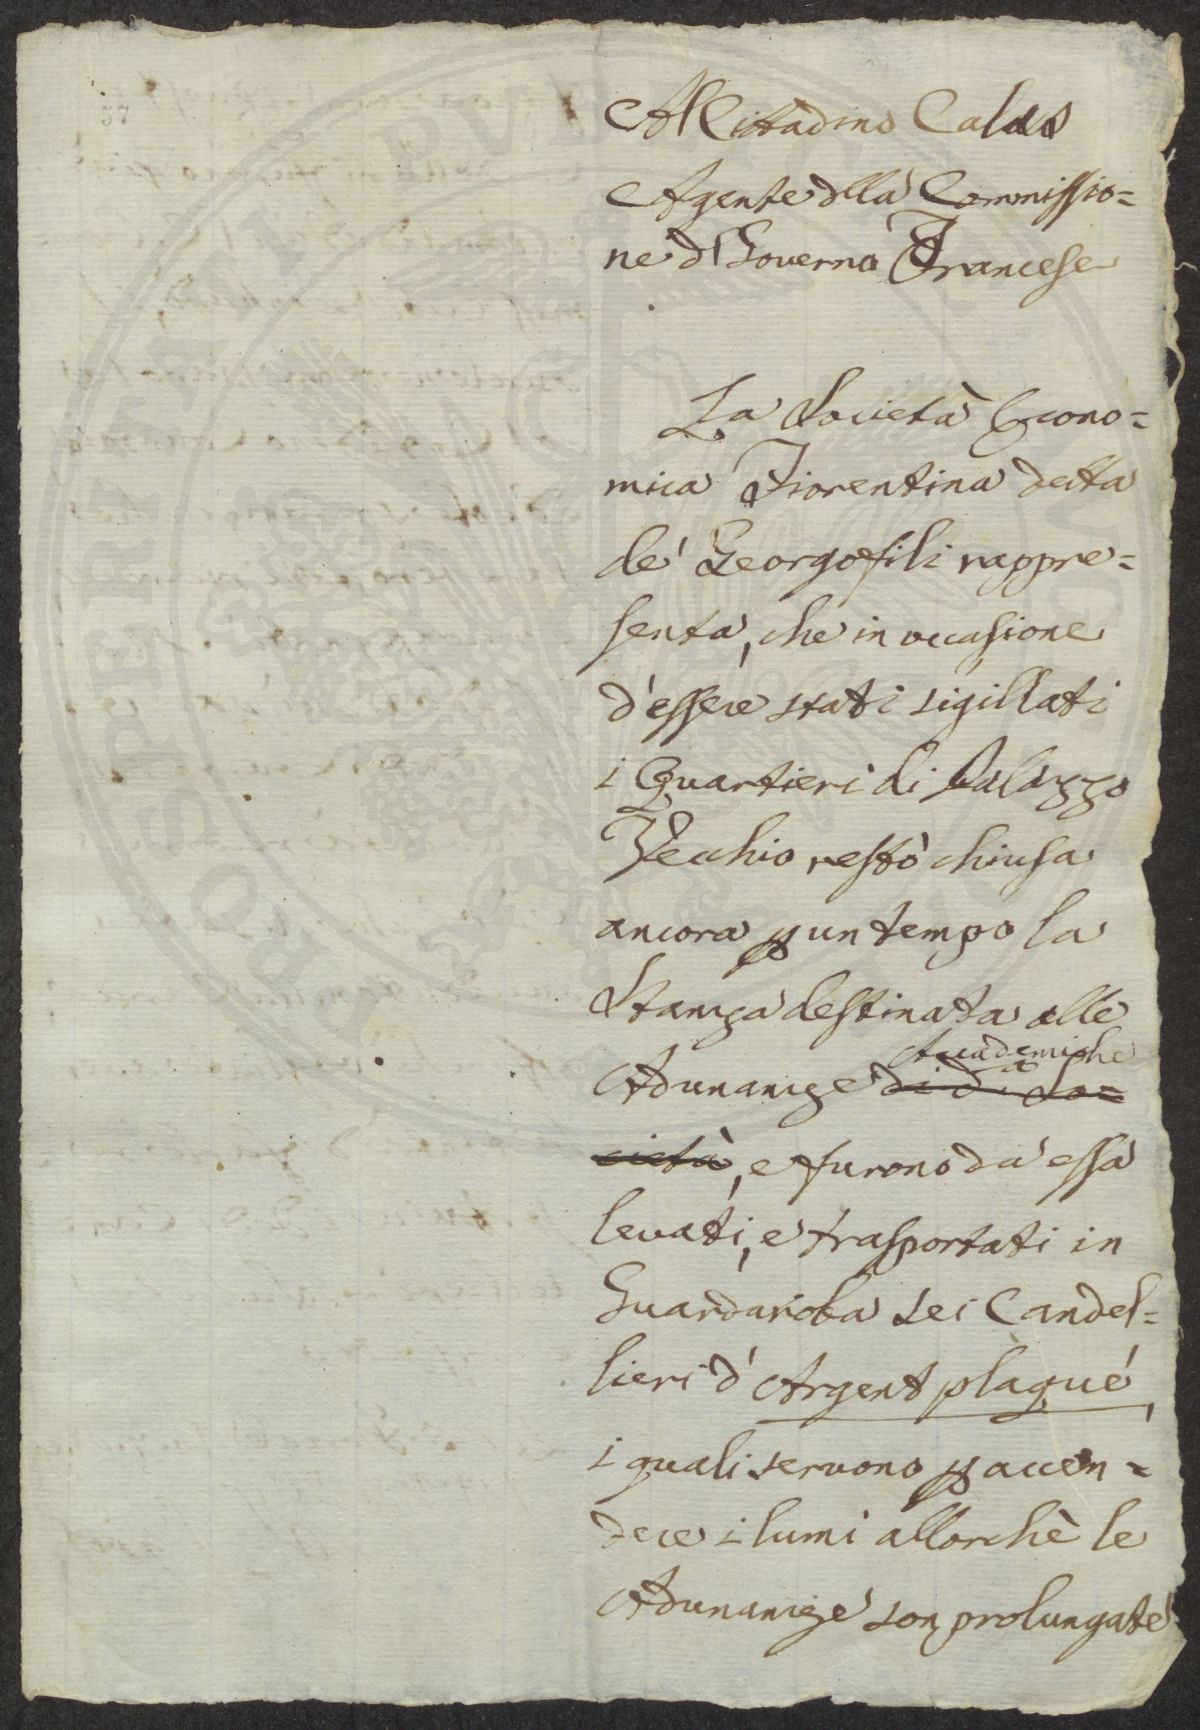 57
Al Cittadino Calas
Agente della Commissio=
ne del Governo Francese
La Società Econo=
mica Fiorentina detta
de' Georgofili rappre=
senta, che in occasione
d'essere stati sigillati
i Quartieri di Palazzo
Vecchio restò chiusa
ancora p un tempo la
Stanza destinata alle
Accademiche
Adunanze di d. So=
cietà, e furono da essa
levati, e trasportati in
Guardaroba sei Candel=
lieri d'Argent plaqué,
i quali servono p accen=
dere i lumi allorchè le
Adunanze son prolungate